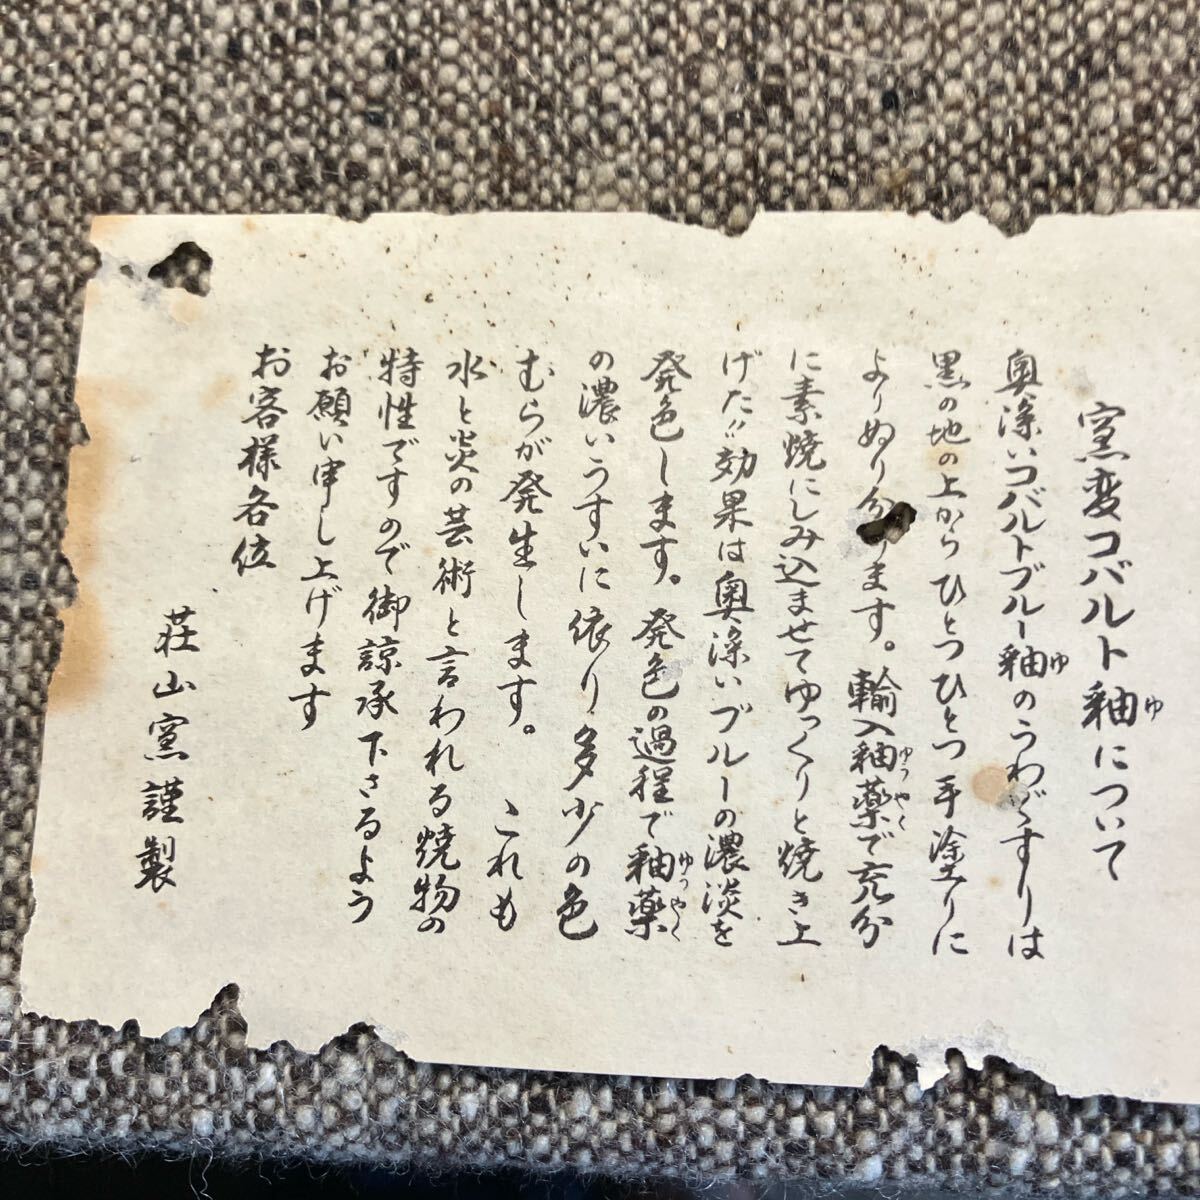 窯変コバルト釉について
ゆ
奥深いコバルトブルー釉のうわぐすりは
ゆ
黒の地の上からひとつひとつ手塗りに
よりぬり分けます。輸入釉薬で充分
ゆうやく
に素焼にしみ込ませてゆっくりと焼き上
げた〃効果は奥深いブルーの濃淡を
発色します。発色の過程で釉薬
ゆうやく
の濃いうすいに依り多少の色
むらが発生します。これも
水と炎の芸術と言われる焼物の
特性ですので御諒承下さるよう
お願い申し上げます
お客様各位
荘山窯謹製